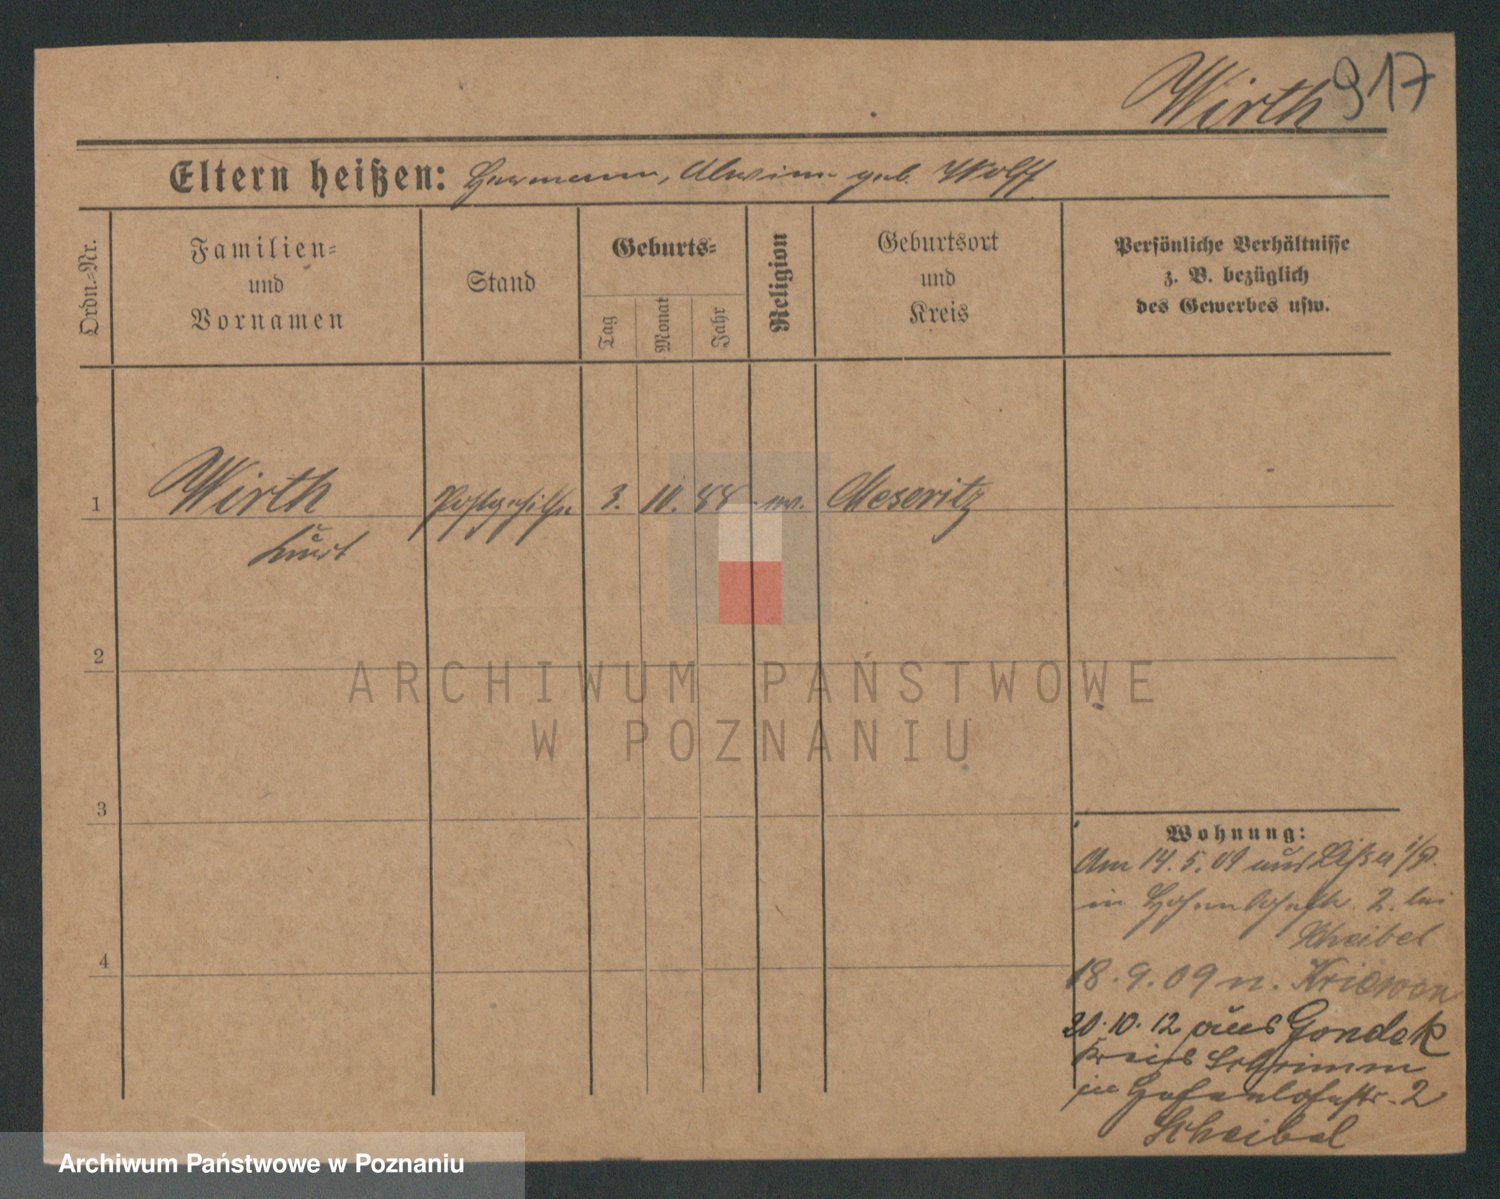 Wirth 917
Eltern heißen: Hermann, Alwine geb. Wolff
Ordn.-Nr.
Familien-
und
Vornamen
Stand
Geburts-
Tag
Monat
Jahr
Religion
Geburtsort
und
Kreis
Persönliche Verhältnisse
z. B. bezüglich
des Gewerbes usw.
1 Wirth Postgehilfe 3. 10. 88 ev. Meseritz
Kurt
2
3
4
Wohnung:
Am 14.5.09 aus Lissa i/P.
in Hohenlohestr. 2. bei
Scheibel
18.9.09 n. Kriewen
20.10.12 aus Gondek
Kreis Schrimm
in Hohenlohestr. 2
Scheibel
ARCHIWUM PAŃSTWOWE
W POZNANIU
Archiwum Państwowe w Poznaniu